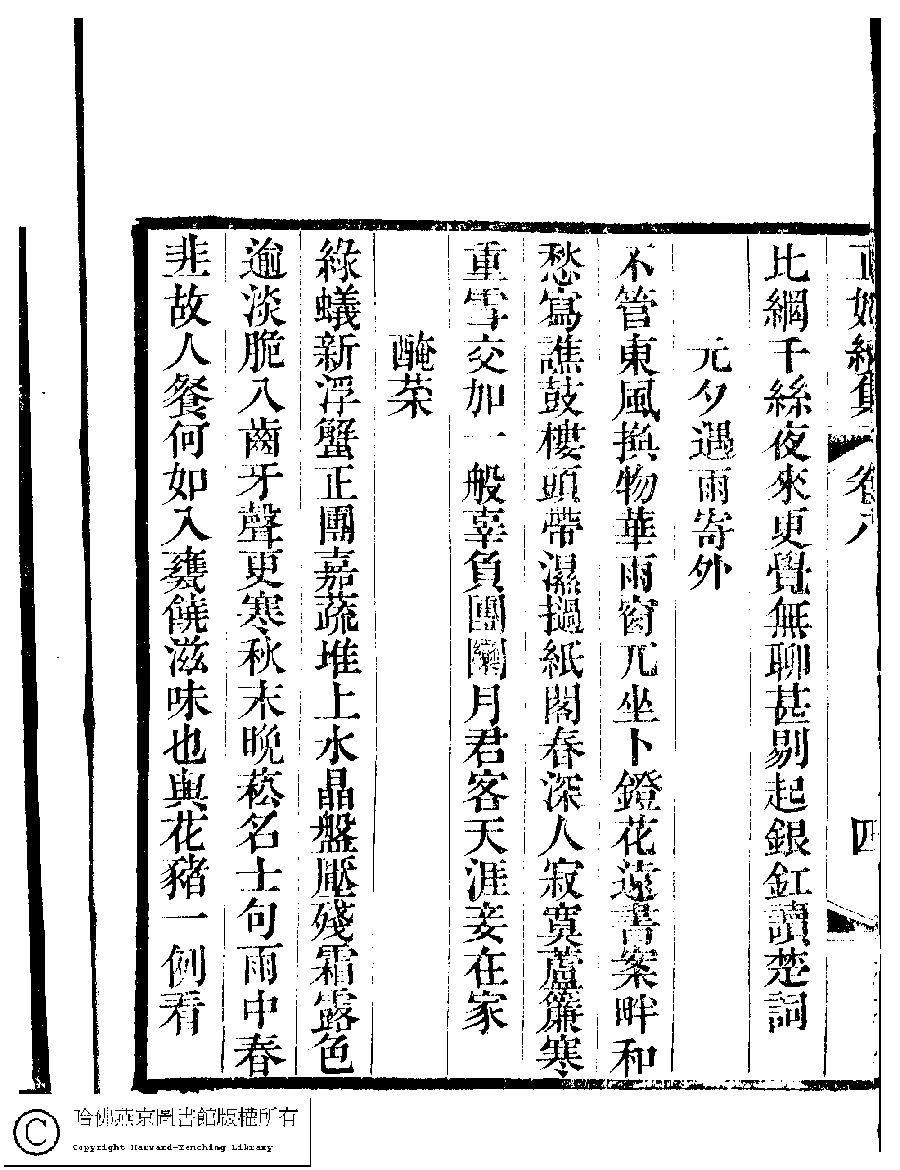 正始集 卷八 四
比綱千絲夜來更覺無聊甚剔起銀釭讀楚詞
元夕遇雨寄外
不管東風換物華雨窗兀坐卜鐙花遠書案畔和
愁寫譙鼓樓頭帶濕撾紙閣春深人寂寞蘆簾寒
重雪交加一般辜負團圞月君客天涯妾在家
醃菜
綠蟻新浮蟹正團嘉蔬堆上水晶盤壓殘霜露色
逾淡脆入齒牙聲更寒秋末晚菘名士句雨中春
韭故人餐何如入甕饒滋味也與花豬一例看
哈佛燕京圖書館版權所有
Copyright Harvard-Yenching Library